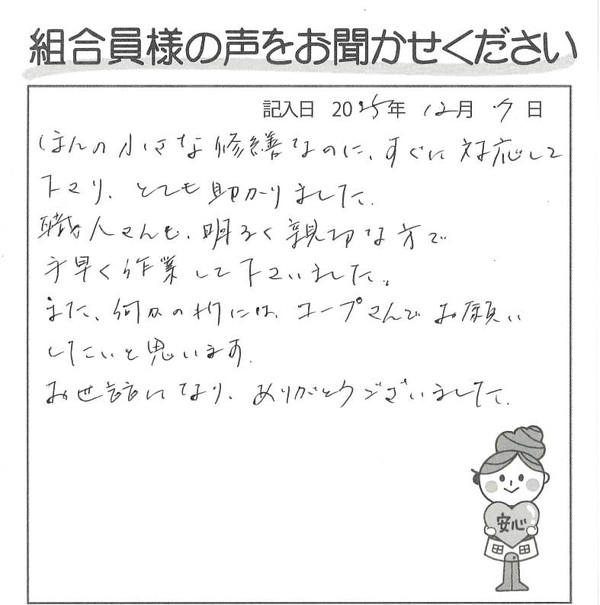 組合員様の声をお聞かせください
記入日 2025年 12月 17日
ほんの小さな修繕なのに、すぐに対応して
下さり、とても助かりました。
職人さんも、明るく親切な方で
手早く作業して下さいました。
また、何かの折には、コープさんでお願い
したいと思います。
お世話になり、ありがとうございました。
安心